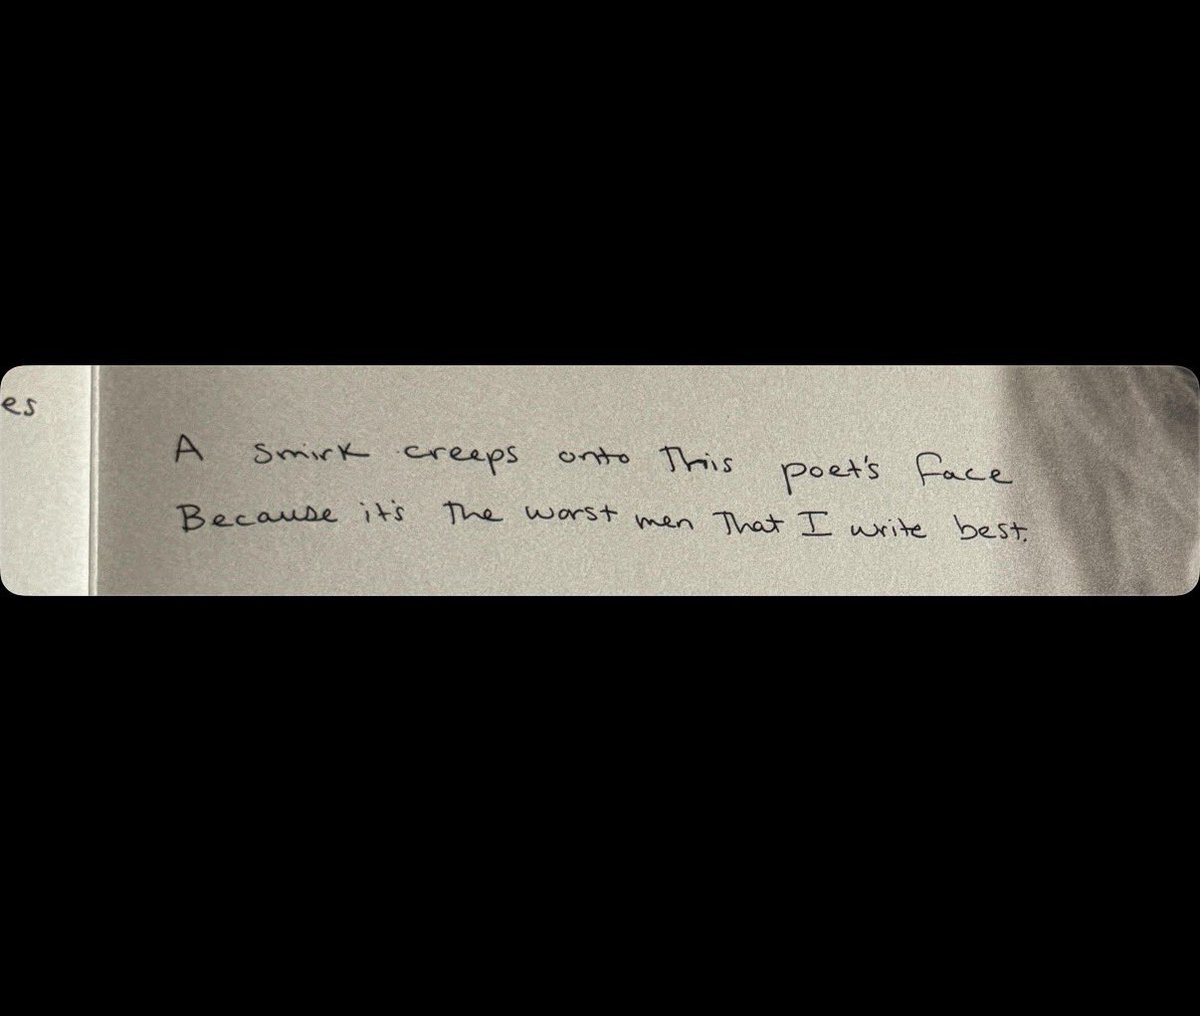 es
A smirk creeps onto This poet's face
Because it's The worst men That I write best.